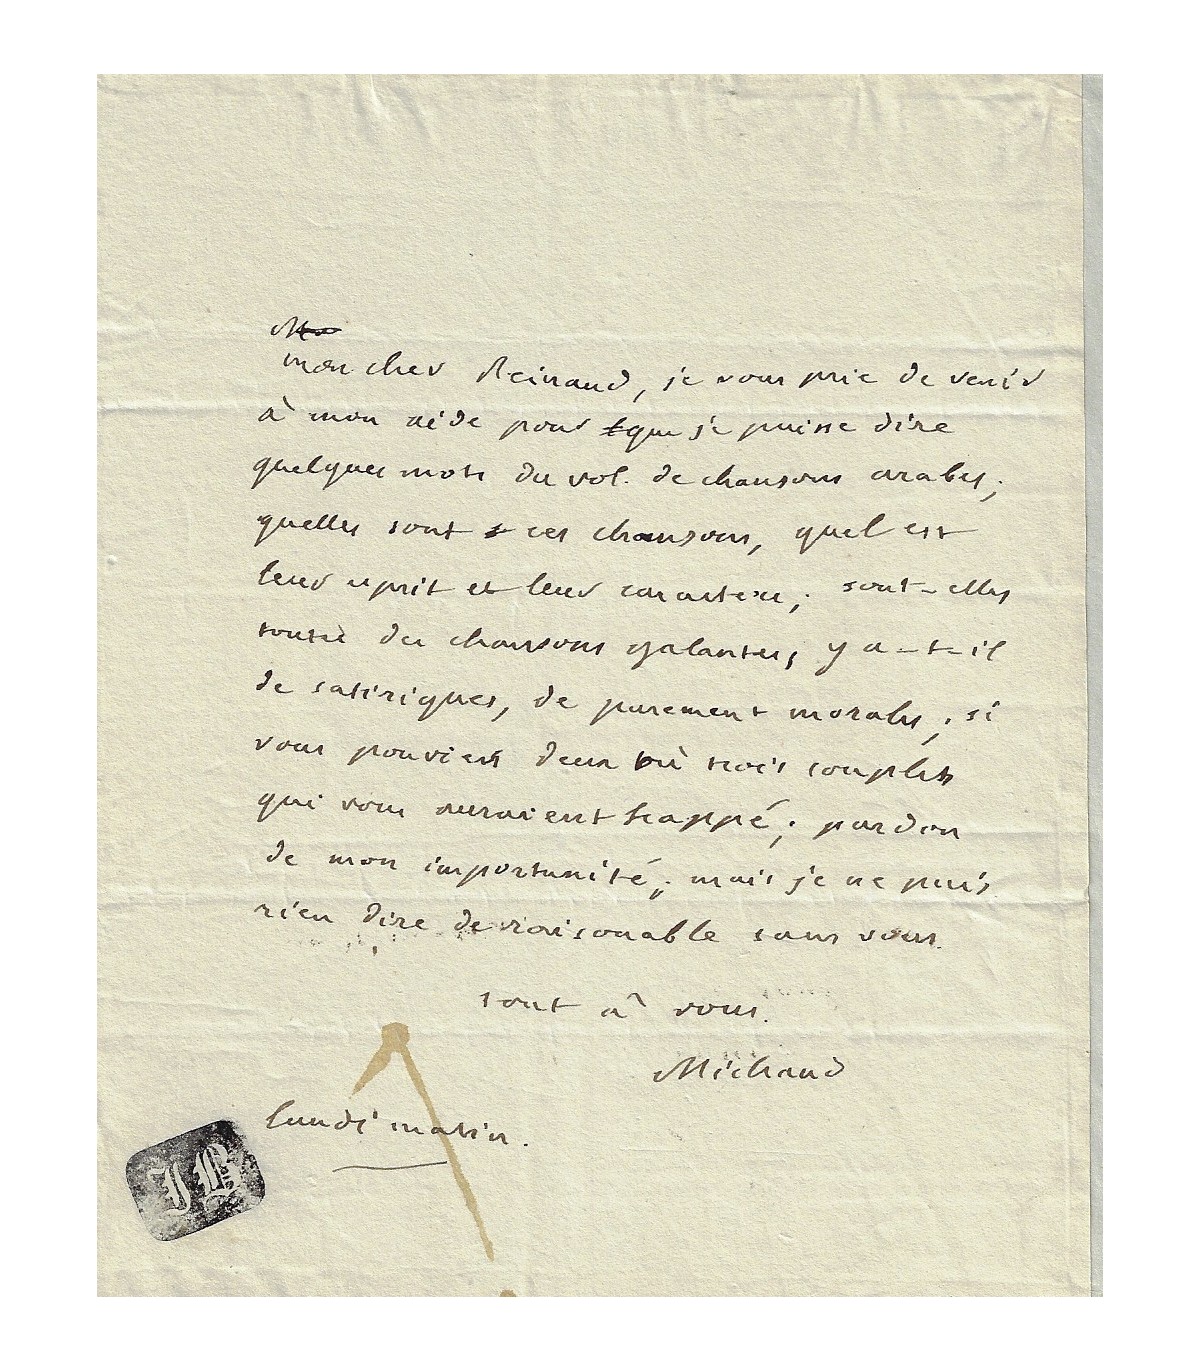 mon cher Reinaud, je vous prie de venir
à mon aide pour que je puisse dire
quelques mots du vol. de chansons arabes;
quelles sont ces chansons, quel est
leur esprit et leur caractere; sont-elles
toutes des chansons galantes, y a-t-il
de satiriques, de purement morales; si
vous pouviez deux où trois couplets
qui vous auraient frappé; pardon
de mon importunité; mais je ne puis
rien dire de raisonable sans vous.
tout à vous.
Michaud
lundi matin.